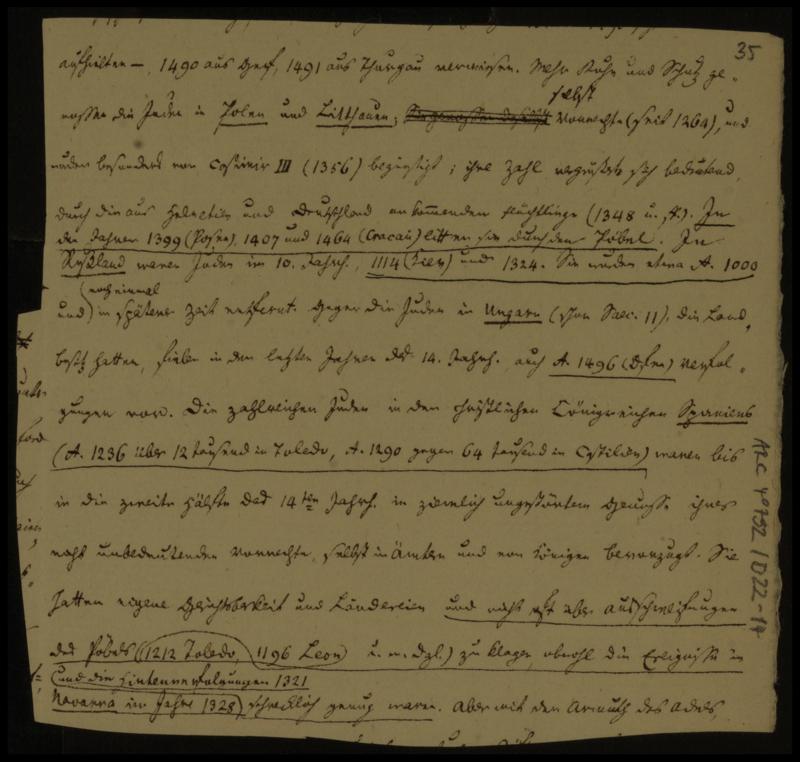 35
aufhielten —, 1490 aus Genf, 1491 aus Thurgau verwiesen. Mehr Ruhe und Schutz ge-
nossen die Juden in Polen und Litthauen; selbst Vorrechte (seit 1264), und
wurden besonders von Casimir III (1356) begünstigt; ihre Zahl vergrößerte sich bedeutend,
durch die aus Helvetien und Deutschland ankommenden Flüchtlinge (1348 u. ff.). In
den Jahren 1399 (Posen), 1407 und 1464 (Cracau) litten sie durch den Pöbel. In
Rußland waren Juden im 10. Jahrh., 1114 (Kiew) und 1324. Sie wurden etwa A. 1000
und (noch einmal) in späterer Zeit entfernt. Gegen die Juden in Ungarn (schon Saec. 11), die Land-
besitz hatten, fielen in den letzten Jahren des 14. Jahrh., auch A. 1496 (Ofen) Verfol-
gungen vor. Die zahlreichen Juden in den christlichen Königreichen Spaniens
(A. 1236 über 12 tausend in Toledo, A. 1290 gegen 64 tausend in Castilien) waren bis
in die zweite Hälfte des 14ten Jahrh. in ziemlich ungestörtem Genusse ihrer
nicht unbedeutenden Vorrechte, selbst in Ämtern und von Königen bevorzugt. Sie
hatten eigene Gerichtsbarkeit und Ländereien und nicht oft über Ausschweifungen
des Pöbels (1212 Toledo, 1196 Leon u. m. dgl.) zu klagen, obwohl die Ereignisse in
(und die Hirtenverfolgungen 1321
Navarra im Jahre 1328) schrecklich genug waren. Aber mit der Armuth des Adels,
ARC 4º792 / D22-14